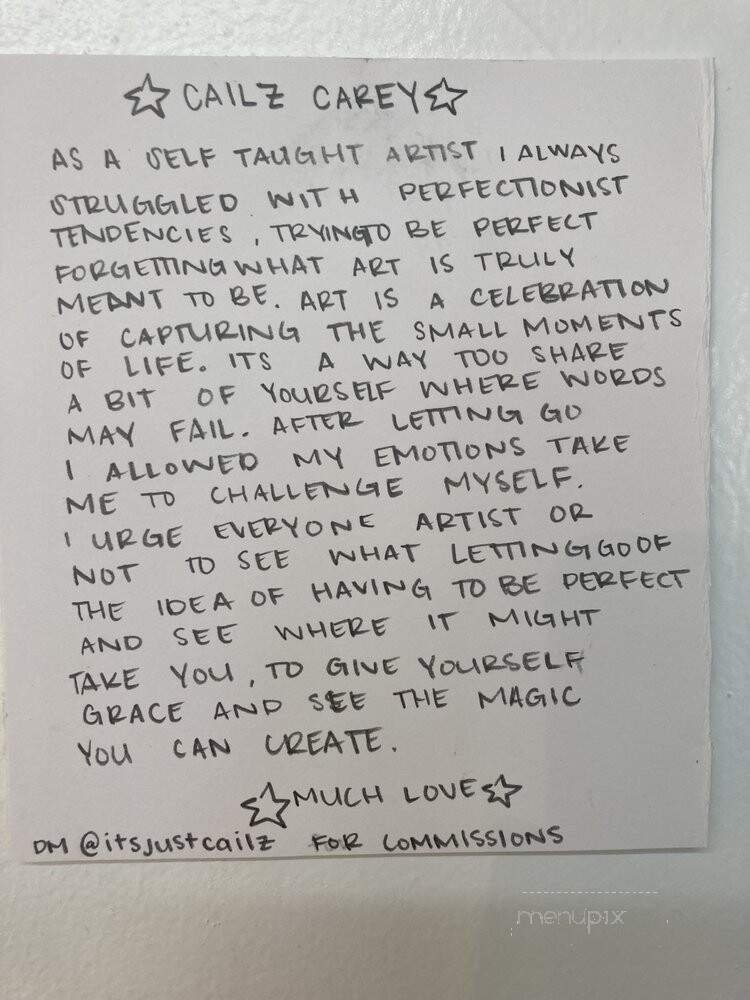 ☆ CAILZ CAREY ☆
AS A SELF TAUGHT ARTIST I ALWAYS
STRUGGLED WITH PERFECTIONIST
TENDENCIES, TRYING TO BE PERFECT
FORGETTING WHAT ART IS TRULY
MEANT TO BE. ART IS A CELEBRATION
OF CAPTURING THE SMALL MOMENTS
OF LIFE. ITS A WAY TOO SHARE
A BIT OF YOURSELF WHERE WORDS
MAY FAIL. AFTER LETTING GO
I ALLOWED MY EMOTIONS TAKE
ME TO CHALLENGE MYSELF.
I URGE EVERYONE ARTIST OR
NOT TO SEE WHAT LETTING GO OF
THE IDEA OF HAVING TO BE PERFECT
AND SEE WHERE IT MIGHT
TAKE YOU, TO GIVE YOURSELF
GRACE AND SEE THE MAGIC
YOU CAN CREATE.
☆ MUCH LOVE ☆
DM @itsjustcailz FOR COMMISSIONS
menupix